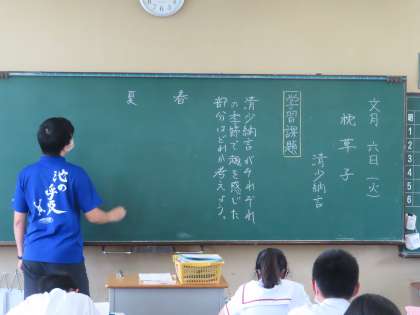 文月 六日(火)
枕草子
清少納言
学習課題
清少納言がそれぞれ
の季節で趣を感じた
部分はどれか考えよう。
春
夏